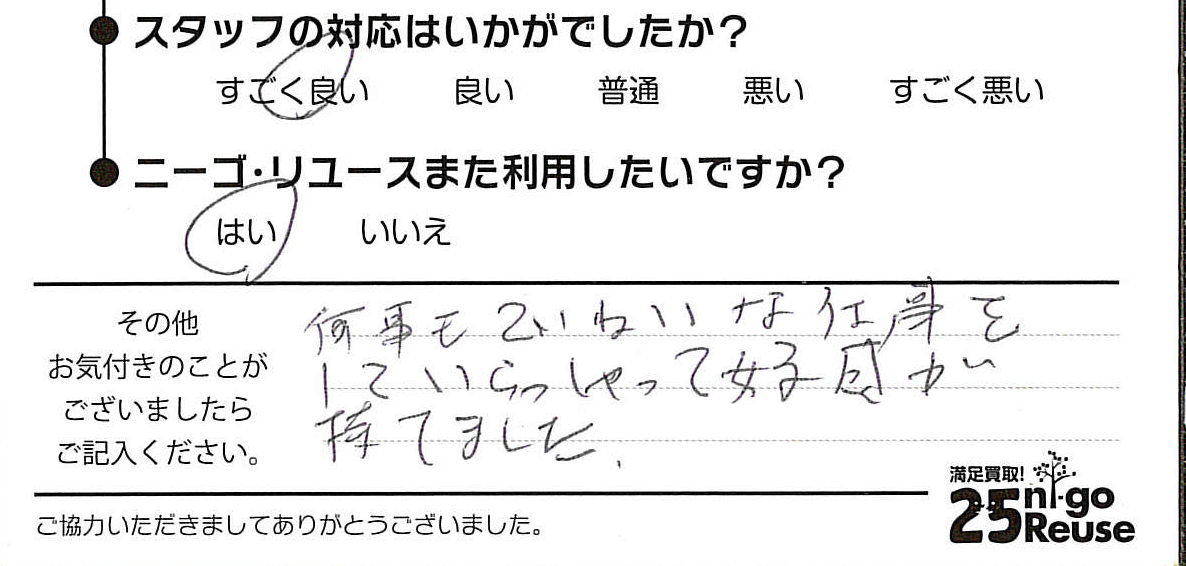 スタッフの対応はいかがでしたか?
すごく良い 良い 普通 悪い すごく悪い
ニーゴ・リユースまた利用したいですか?
はい いいえ
その他
お気付きのことが
ございましたら
ご記入ください。
何事もていねいな仕事を
していらっしゃって好感が
持てました.
ご協力いただきましてありがとうございました。
満足買取!
25 ni-go
Reuse